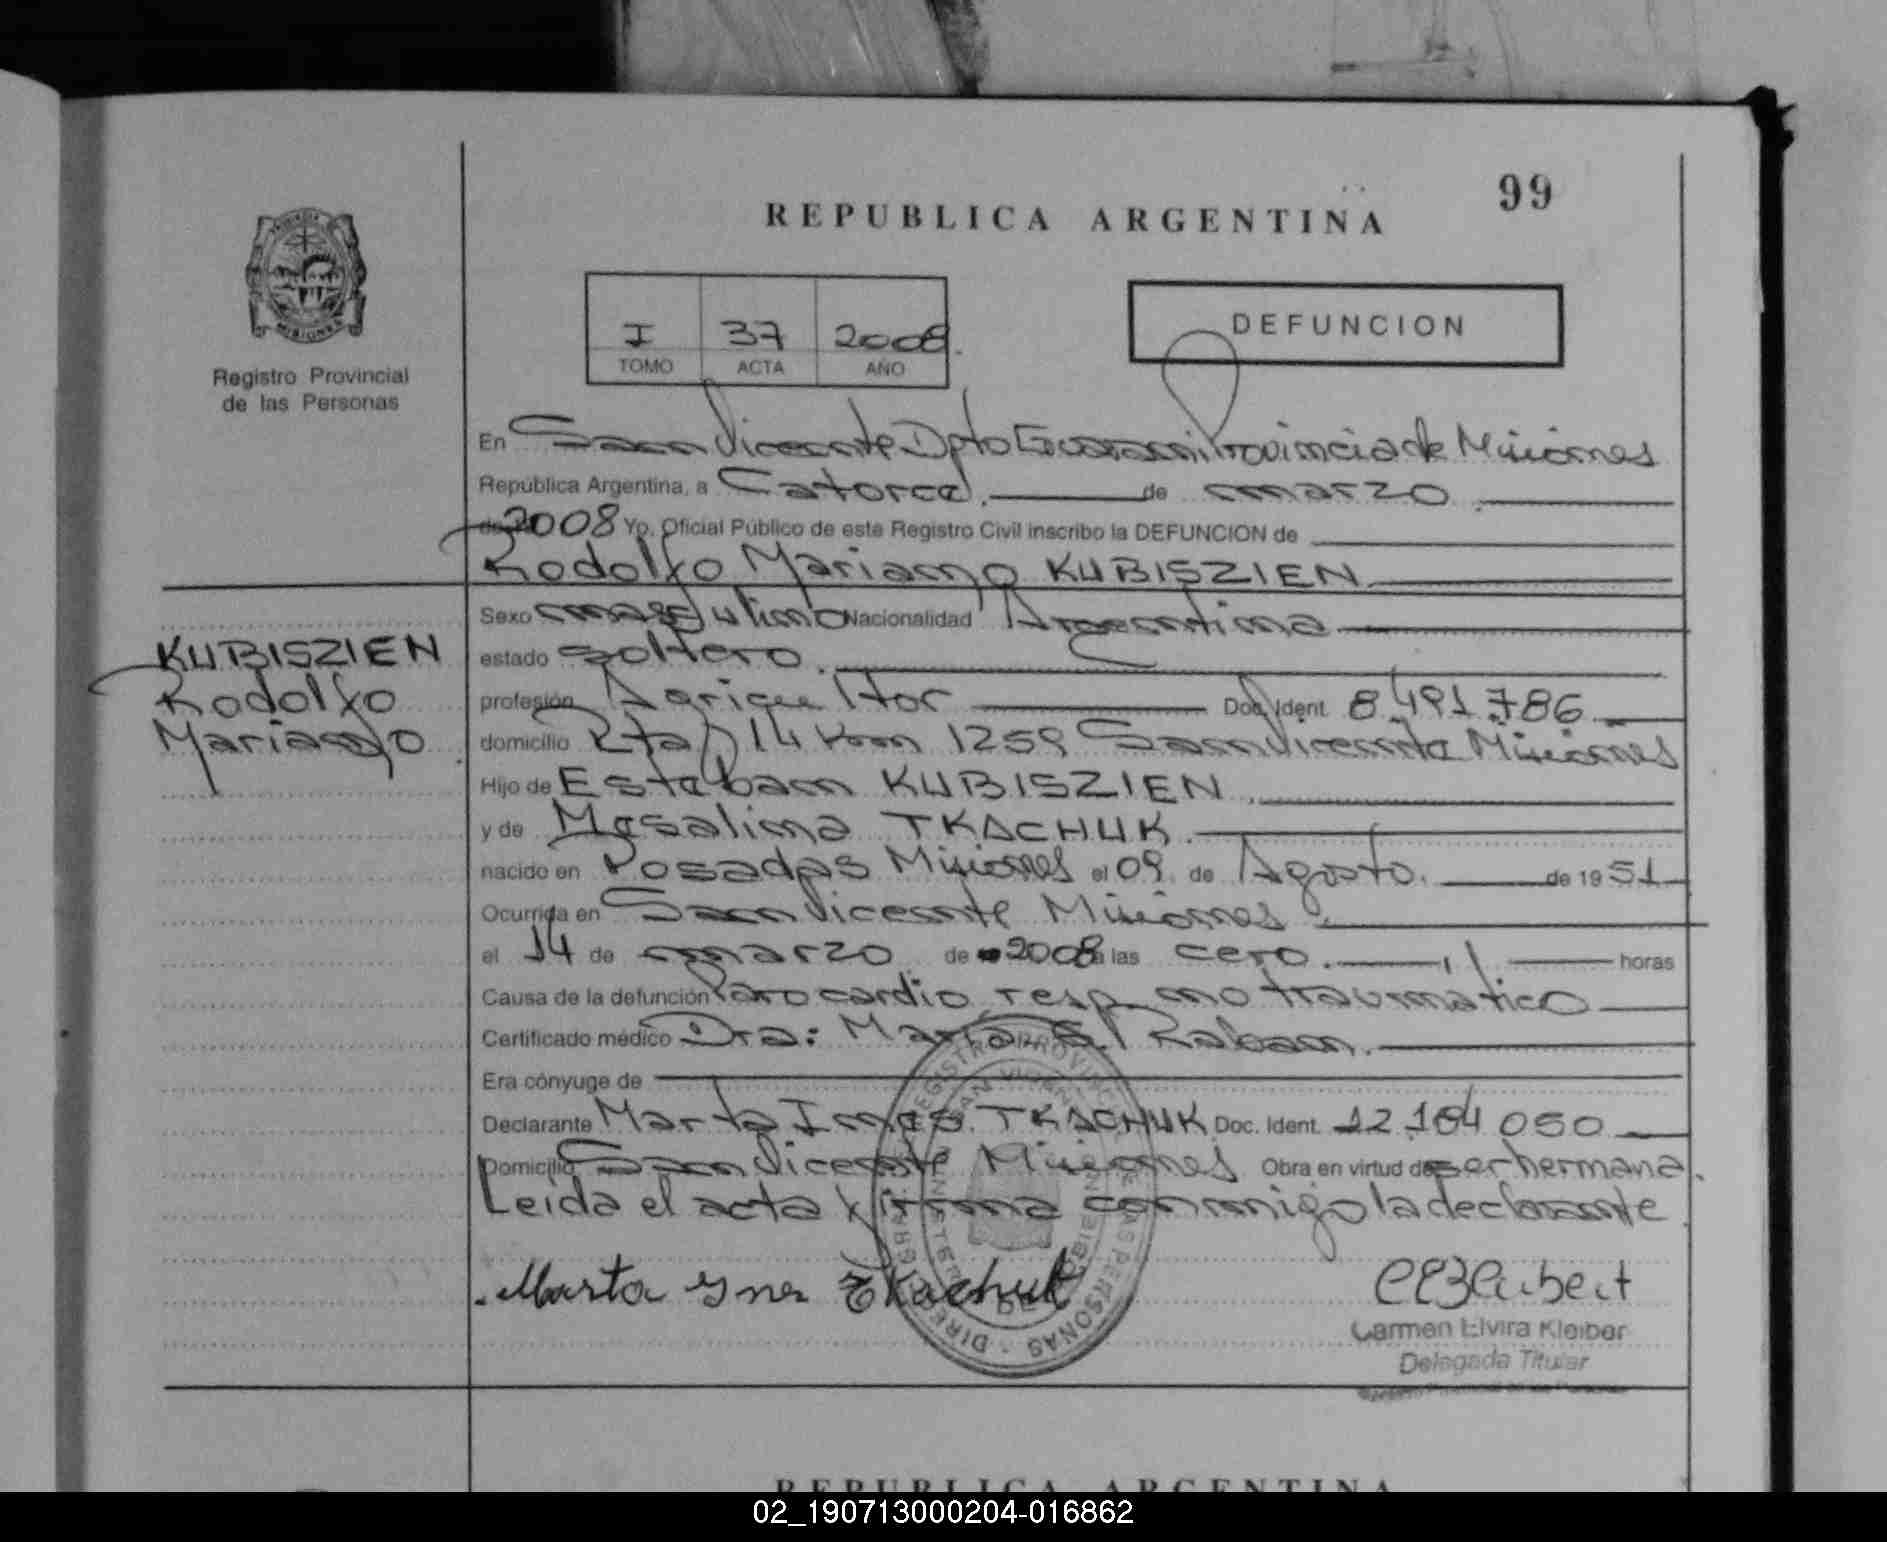 REPUBLICA ARGENTINA
99
MISIONES
Registro Provincial
de las Personas
I 37 2008.
TOMO ACTA AÑO
DEFUNCION
En San Vicente Dpto Guarani Provincia de Misiones
República Argentina, a Catorce. de marzo
2008 Yo, Oficial Público de este Registro Civil inscribo la DEFUNCION de
Rodolfo Mariano KUBISZIEN
Sexo masculino Nacionalidad Argentina
estado soltero.
profesión Agricultor Doc. Ident. 8.491.786
domicilio Rta 14 Km 1259 San Vicente Misiones
Hijo de Esteban KUBISZIEN.
y de TKACHUK.
nacido en Posadas Misiones el 09 de Agosto. de 1951
Ocurrida en San Vicente Misiones.
el 14 de marzo de 2008 a las cero. horas
Causa de la defunción Paro cardio resp no traumatico
Certificado médico Dra: Maria S. Raban.
Era cónyuge de
Declarante Marta Ines TKACHUK Doc. Ident. 12.184 050
Domicilio San Vicente Misiones Obra en virtud de ser hermana.
Leida el acta firma conmigo la declarante
KUBISZIEN
Rodolfo
Mariano
Marta Ynes Tkachuk
Carmen Elvira Kleiber
Delegada Titular
Registro Provincial de las Personas
REPUBLICA ARGENTINA
02_190713000204-016862